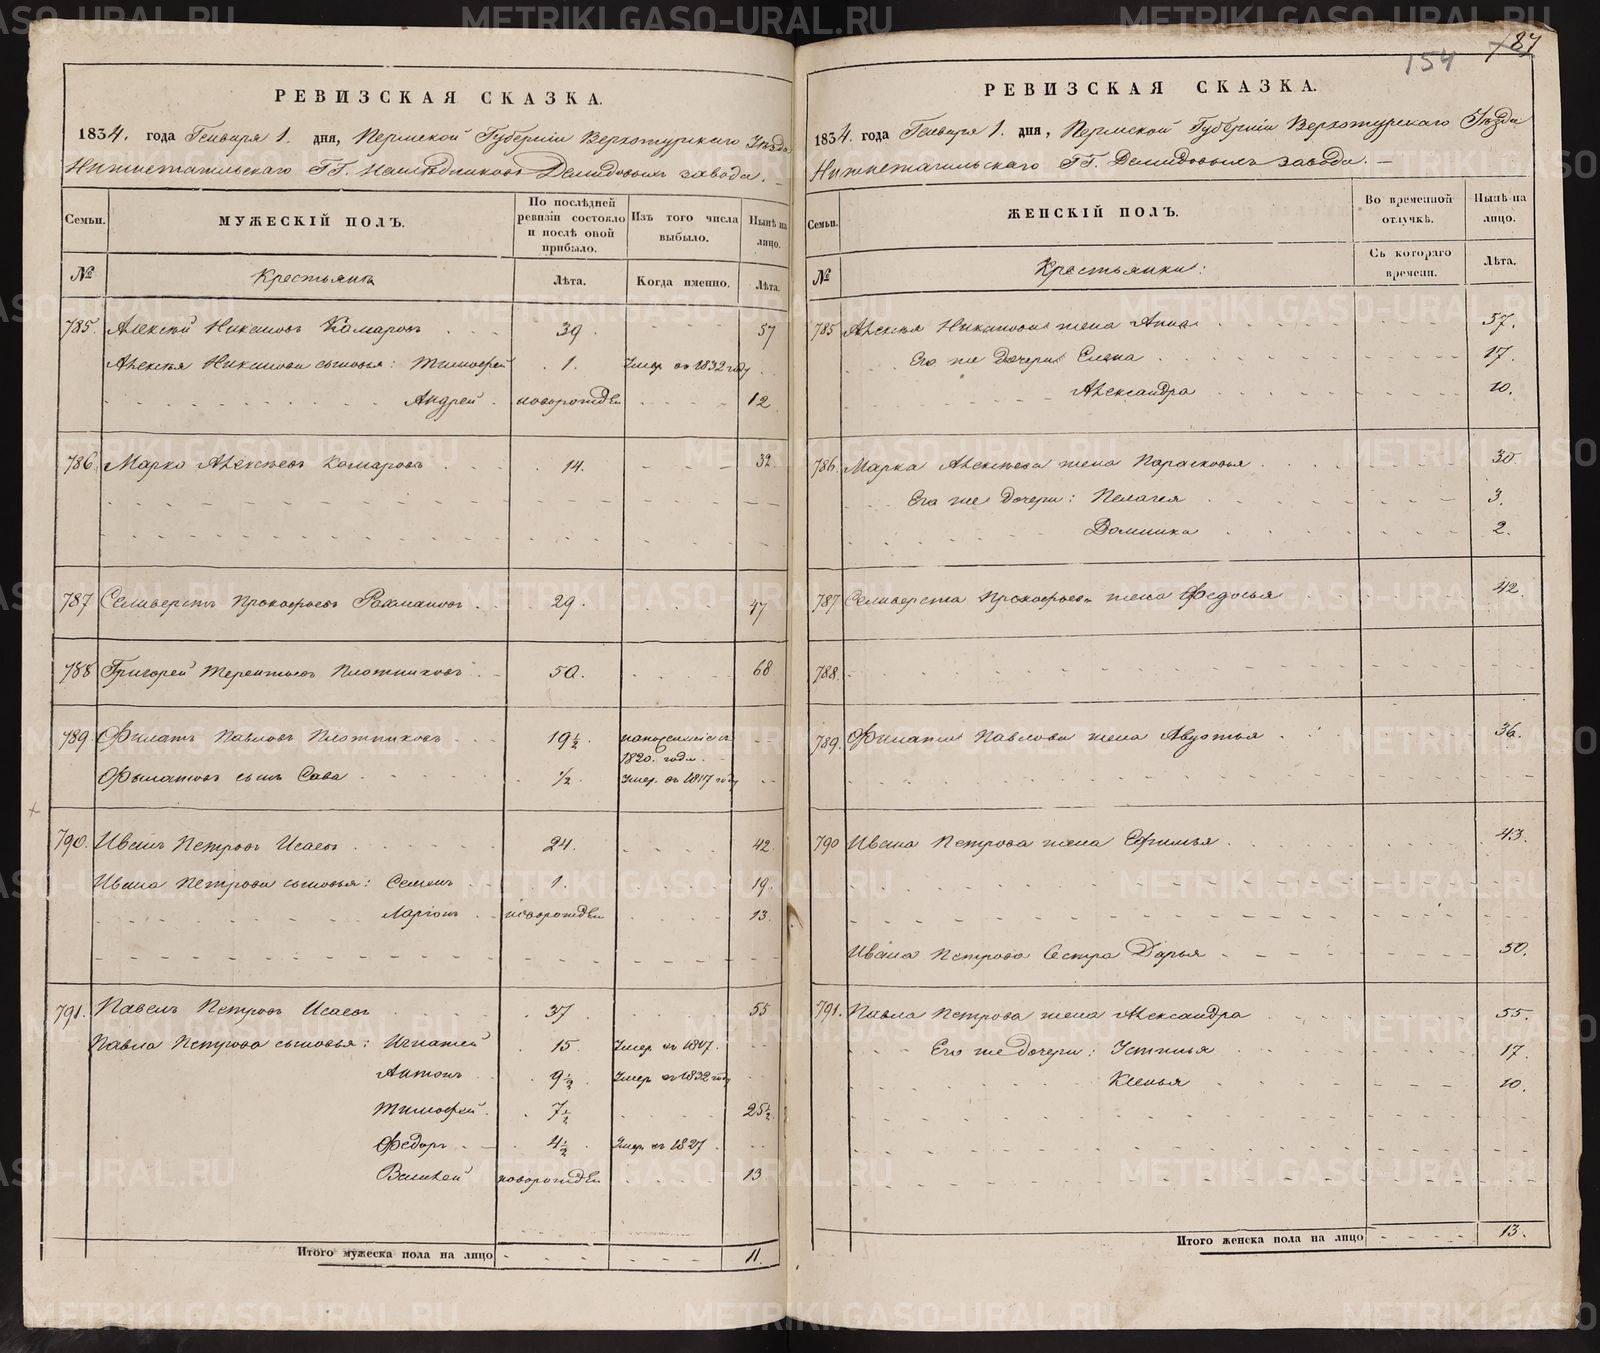 РЕВИЗСКАЯ СКАЗКА.
1834. года Генваря 1. дня, Пермской Губерніи Верхотурскаго Уѣзда
Нижнетагильскаго ГГ. Наслѣдниковъ Демидовыхъ завода.
Семьи.
МУЖЕСКІЙ ПОЛЪ.
По послѣдней ревизіи состояло и послѣ оной прибыло.
Изъ того числа выбыло.
Нынѣ на лицо.
№
Крестьянъ
Лѣта.
Когда именно.
Лѣта.
785. Алексѣй Никитинъ Комаровъ 39. 57
Алексѣя Никитина сыновья: Тимофей 1. Умер. въ 1832 году
Андрей новорожден 12
786. Марко Алексѣевъ Комаровъ 14. 32
787 Селиверстъ Прокофьевъ Рахмановъ 29. 47
788 Григорей Терентьевъ Плотниковъ 50. 68
789 Филатъ Павловъ Плотниковъ 19½ на поселеніе въ
1820. годъ
Филатовъ сынъ Сава ½ Умер. въ 1817 году
790. Иванъ Петровъ Исаевъ 24. 42
Ивана Петрова сыновья: Семенъ 1. 19
Ларіонъ новорожден 13
791. Павелъ Петровъ Исаевъ 37 55
Павла Петрова сыновья: Игнатей 15 Умер въ 1817.
Антонъ 9½ Умер въ 1832 году
Тимофей 7½ 25½
Федоръ 4½ Умер. въ 1827
Василей новорожден 13
Итого мужеска пола на лицо 11.
154 787
РЕВИЗСКАЯ СКАЗКА.
1834. года Генваря 1. дня, Пермской Губерніи Верхотурскаго Уѣзда
Нижнетагильскаго ГГ. Демидовыхъ завода.
Семьи.
ЖЕНСКІЙ ПОЛЪ.
Во временной отлучкѣ.
Нынѣ на лицо.
№
Крестьянки:
Съ котораго времени.
Лѣта.
785 Алексѣя Никитина жена Анна 57.
Его же дочери Елена 17.
Александра 10.
786. Марка Алексѣева жена Парасковья 30
Его же дочери: Пелагея 3.
Домника 2.
787 Селиверста Прокофьева жена Федосья 42.
788.
789. Филата Павлова жена Авдотья 36.
790 Ивана Петрова жена Ефимья 43.
Ивана Петрова Сестра Дарья 50.
791. Павла Петрова жена Александра 55.
Его же дочери: Устинья 17
Ксенья 10.
Итого женска пола на лицо 13.
METRIKI.GASO-URAL.RU